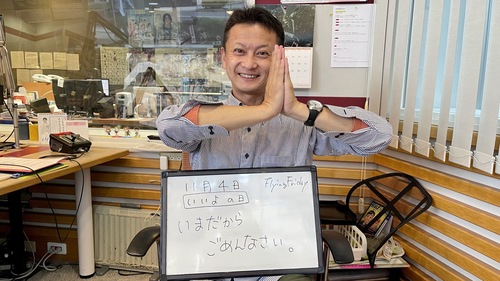 11月4日
FlyingFriday
いいよの日
いまだから
ごめんなさい。